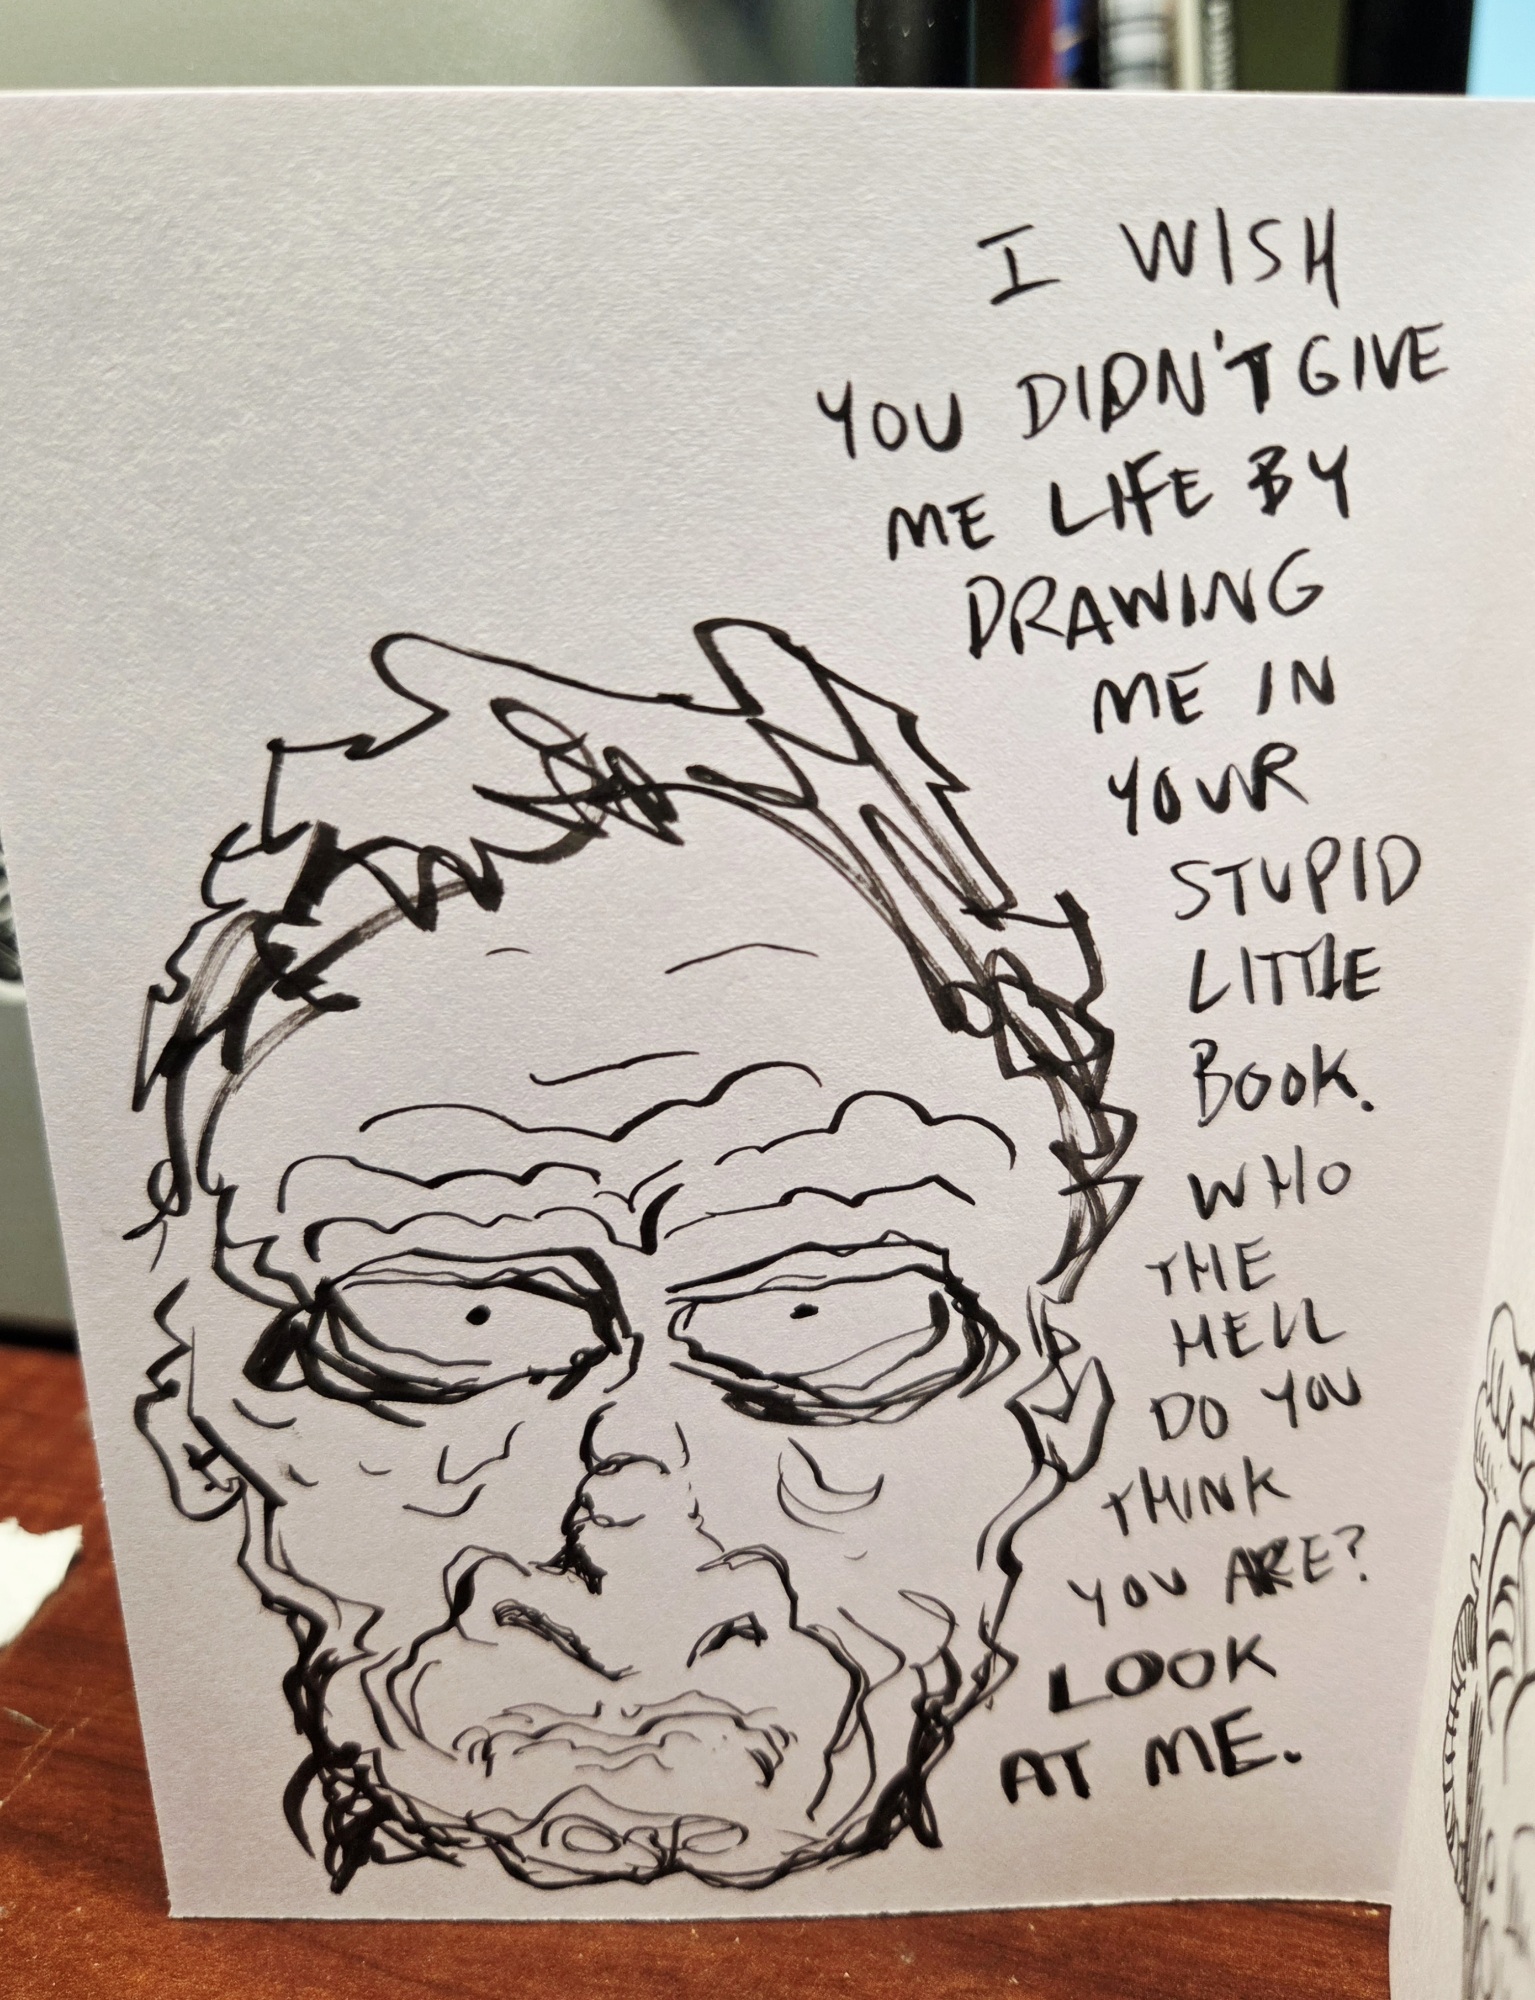 I WISH
YOU DIDN'T GIVE
ME LIFE BY
DRAWING
ME IN
YOUR
STUPID
LITTLE
BOOK.
WHO
THE
HELL
DO YOU
THINK
YOU ARE?
LOOK
AT ME.